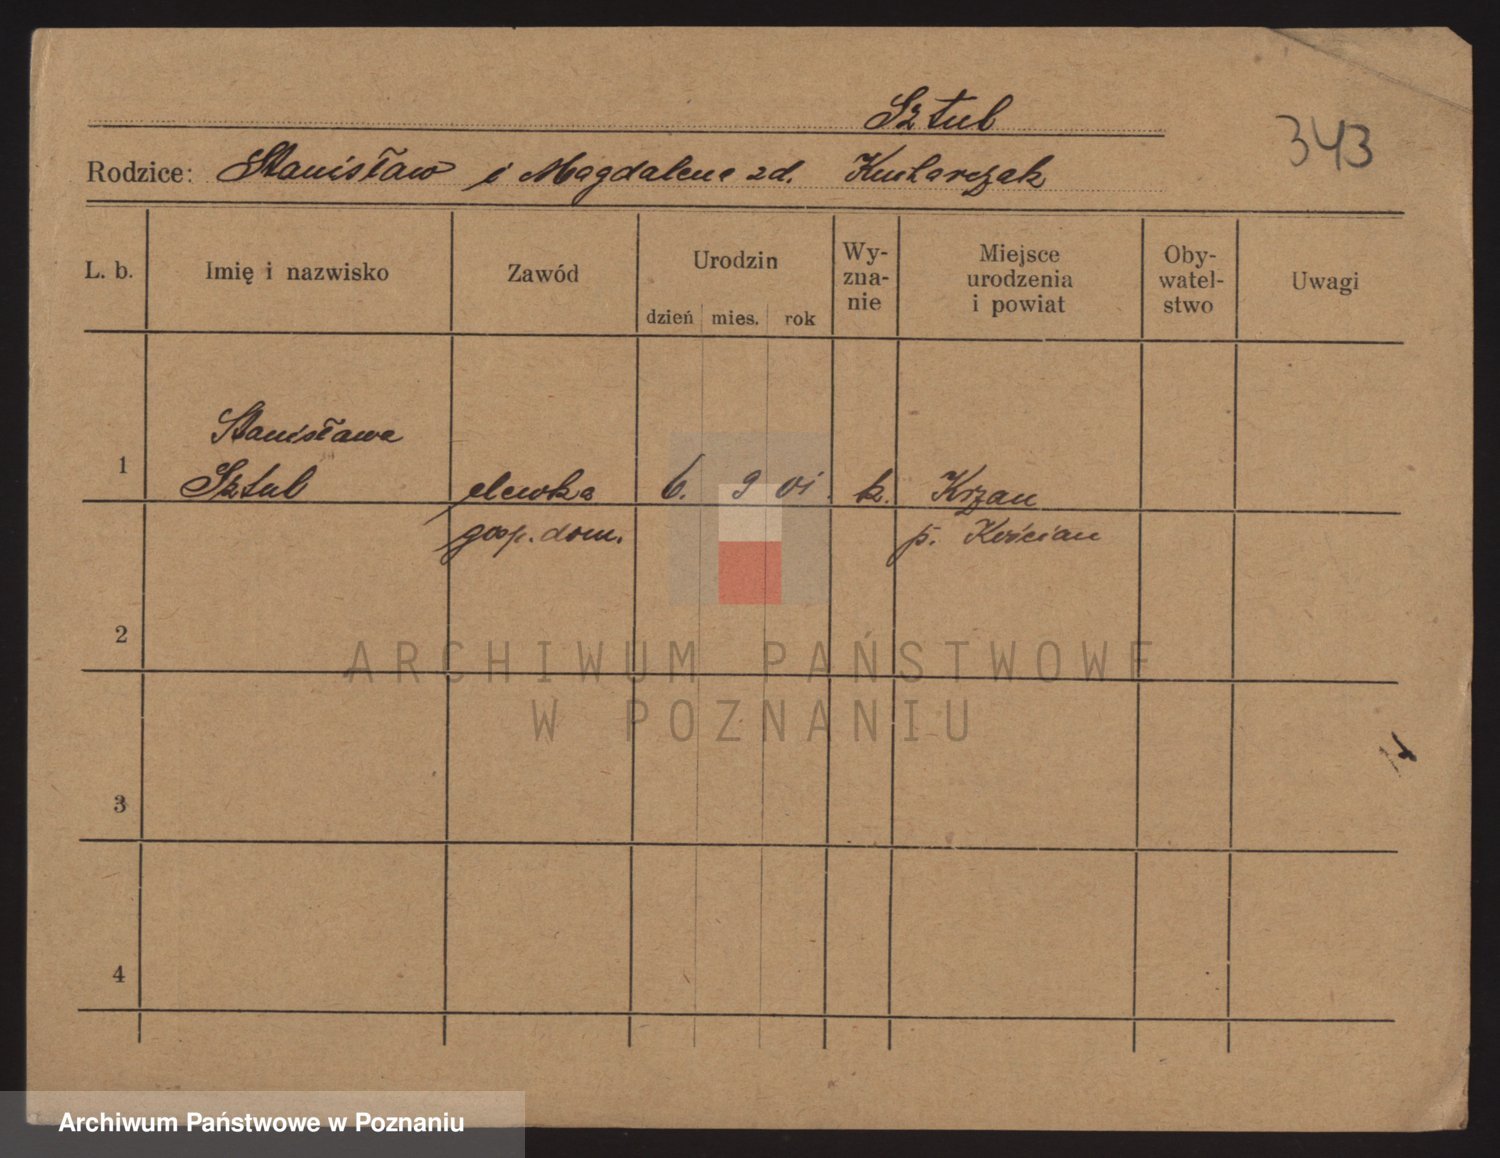 Sztub
343
Rodzice: Stanisław i Magdalena zd. Kucharczak
L. b.
Imię i nazwisko
Zawód
Urodzin
dzień mies. rok
Wy-
zna-
nie
Miejsce
urodzenia
i powiat
Oby-
watel-
stwo
Uwagi
Stanisława
1 Sztub elewka 6. 9 01. k. Krzan
gosp. dom. p. Kościan
2
ARCHIWUM PAŃSTWOWE
W POZNANIU
3
4
Archiwum Państwowe w Poznaniu